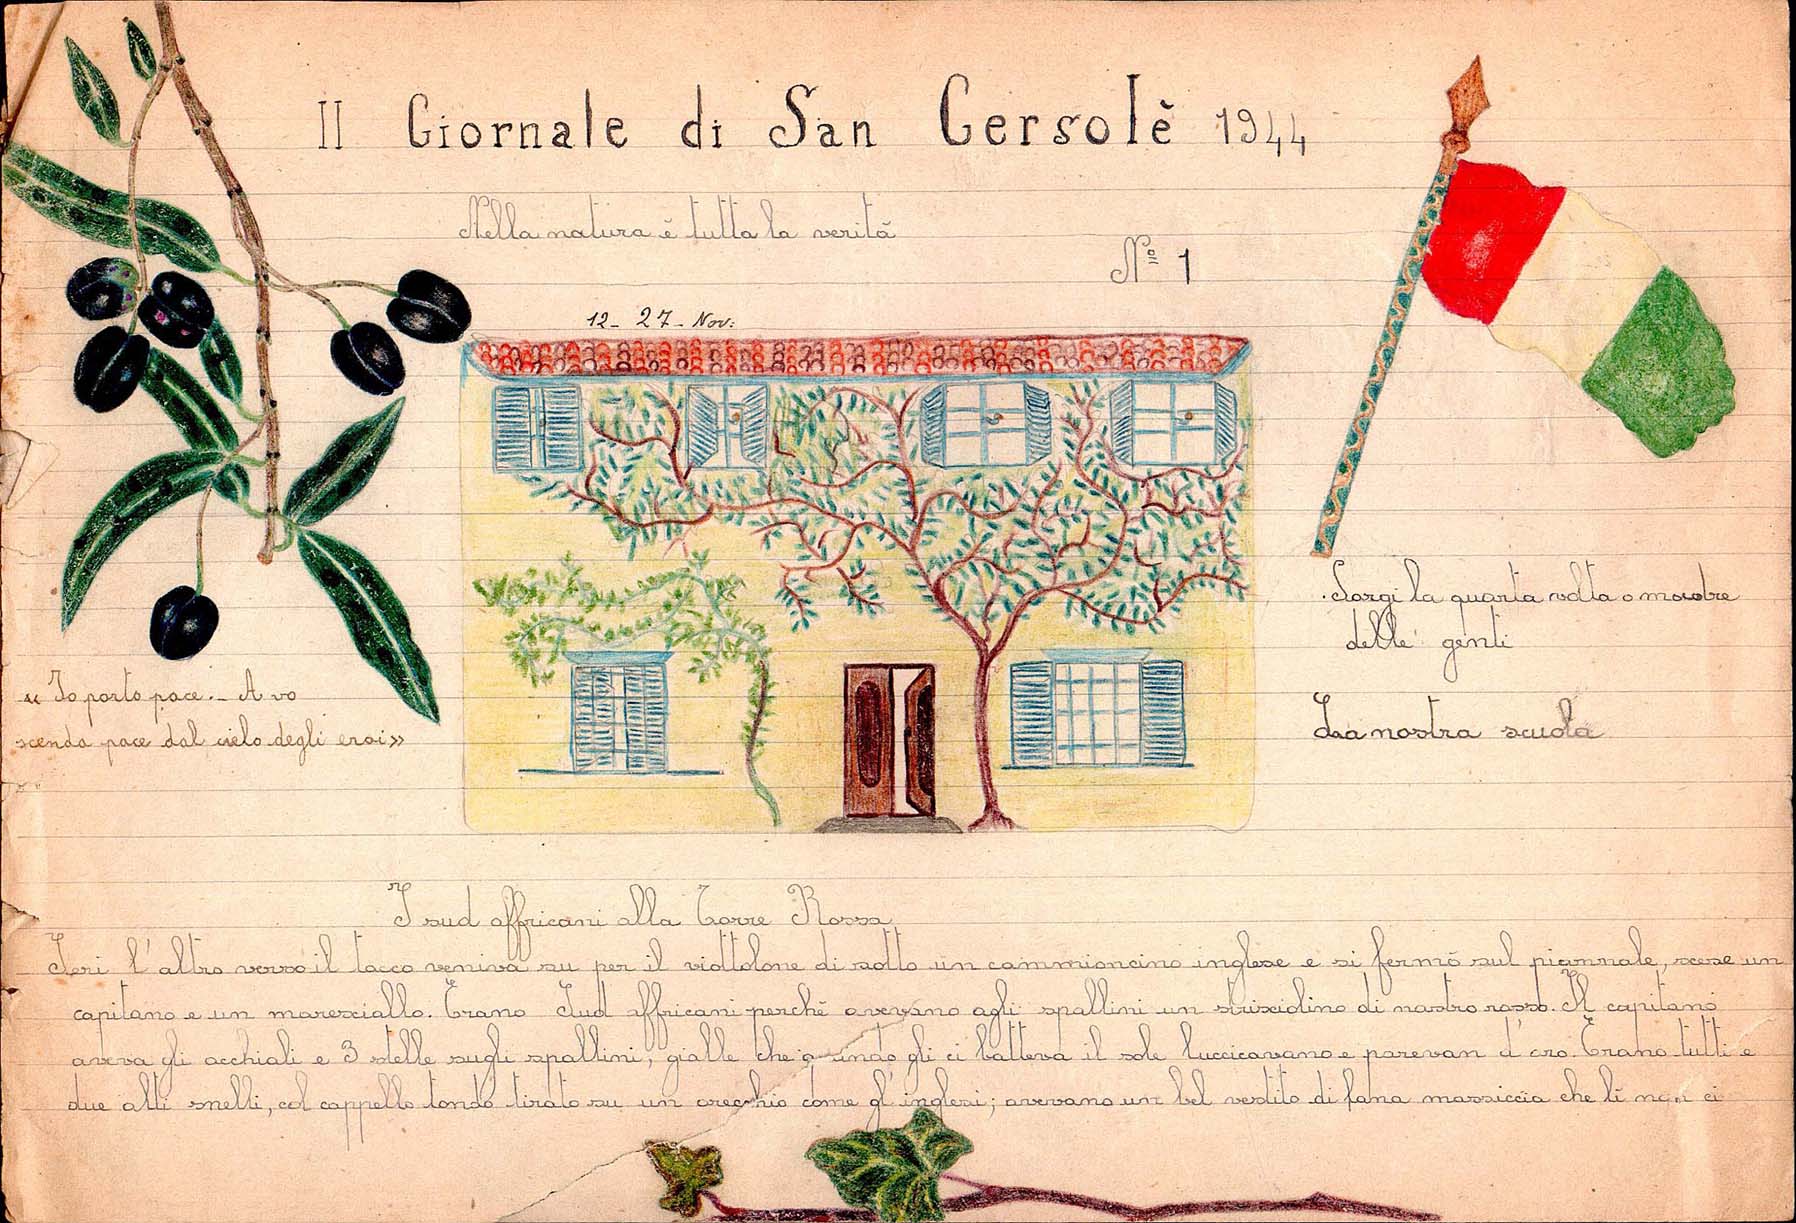 Il Giornale di San Gersolè 1944
Nella natura è tutta la verità
Nº 1
12- 27- Nov:
Sorgi la quarta volta o madre
delle genti
La nostra scuola
« Io porto pace. - A vo
scenda pace dal cielo degli eroi »
I sud affricani alla Torre Rossa
Ieri l'altro verso il tocco veniva su per il viottolone di sotto un cammioncino inglese e si fermò sul piazzale, scese un
capitano e un maresciallo. Erano Sud affricani perchè avevano agli spallini un strisciolino di nastro rosso. Il capitano
aveva gli occhiali e 3 stelle sugli spallini, gialle che quando gli ci batteva il sole luccicavano e parevan d'oro. Erano tutti e
due alti snelli, col cappello tondo tirato su un orecchio come gl'inglesi; avevano un bel vestito di lana massiccia che lì non ci